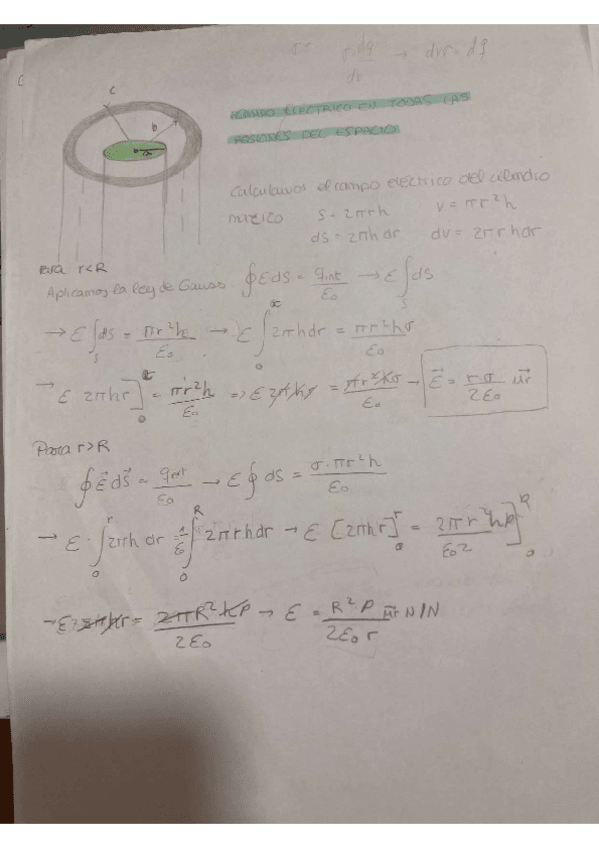 dq → dv·r = dq
dv
c
b
a
CAMPO ELECTRICO EN TODAS LAS
REGIONES DEL ESPACIO
Calculamos el campo eléctrico del cilindro
S = 2πrh V = πr²h
ds = 2πh dr dv = 2πrh dr
Para r<R
Aplicamos la ley de Gauss ∮Eds = qint/ε₀ → E∫ₛds
→ E∫ₛds = πr²h/ε₀ → E∫₀ 2πhdr = πr²hσ/ε₀
→ E 2πhr]₀ = πr²h/ε₀ ⇒ E2πhr = πr²hσ/ε₀ → E⃗ = r·σ/2ε₀ u⃗r
Para r>R
∮E⃗ds⃗ = qint/ε₀ → E∮ds = σ·πr²h/ε₀
→ E·∫₀ʳ2πh dr = 1/ε ∫₀ᴿ2πrhdr → E [2πhr]₀ʳ = 2πr²hρ/ε₀2]₀ᴿ
→ E·2πhr = 2πR²hρ/2ε₀ → E = R²ρ/2ε₀r u⃗r N/N